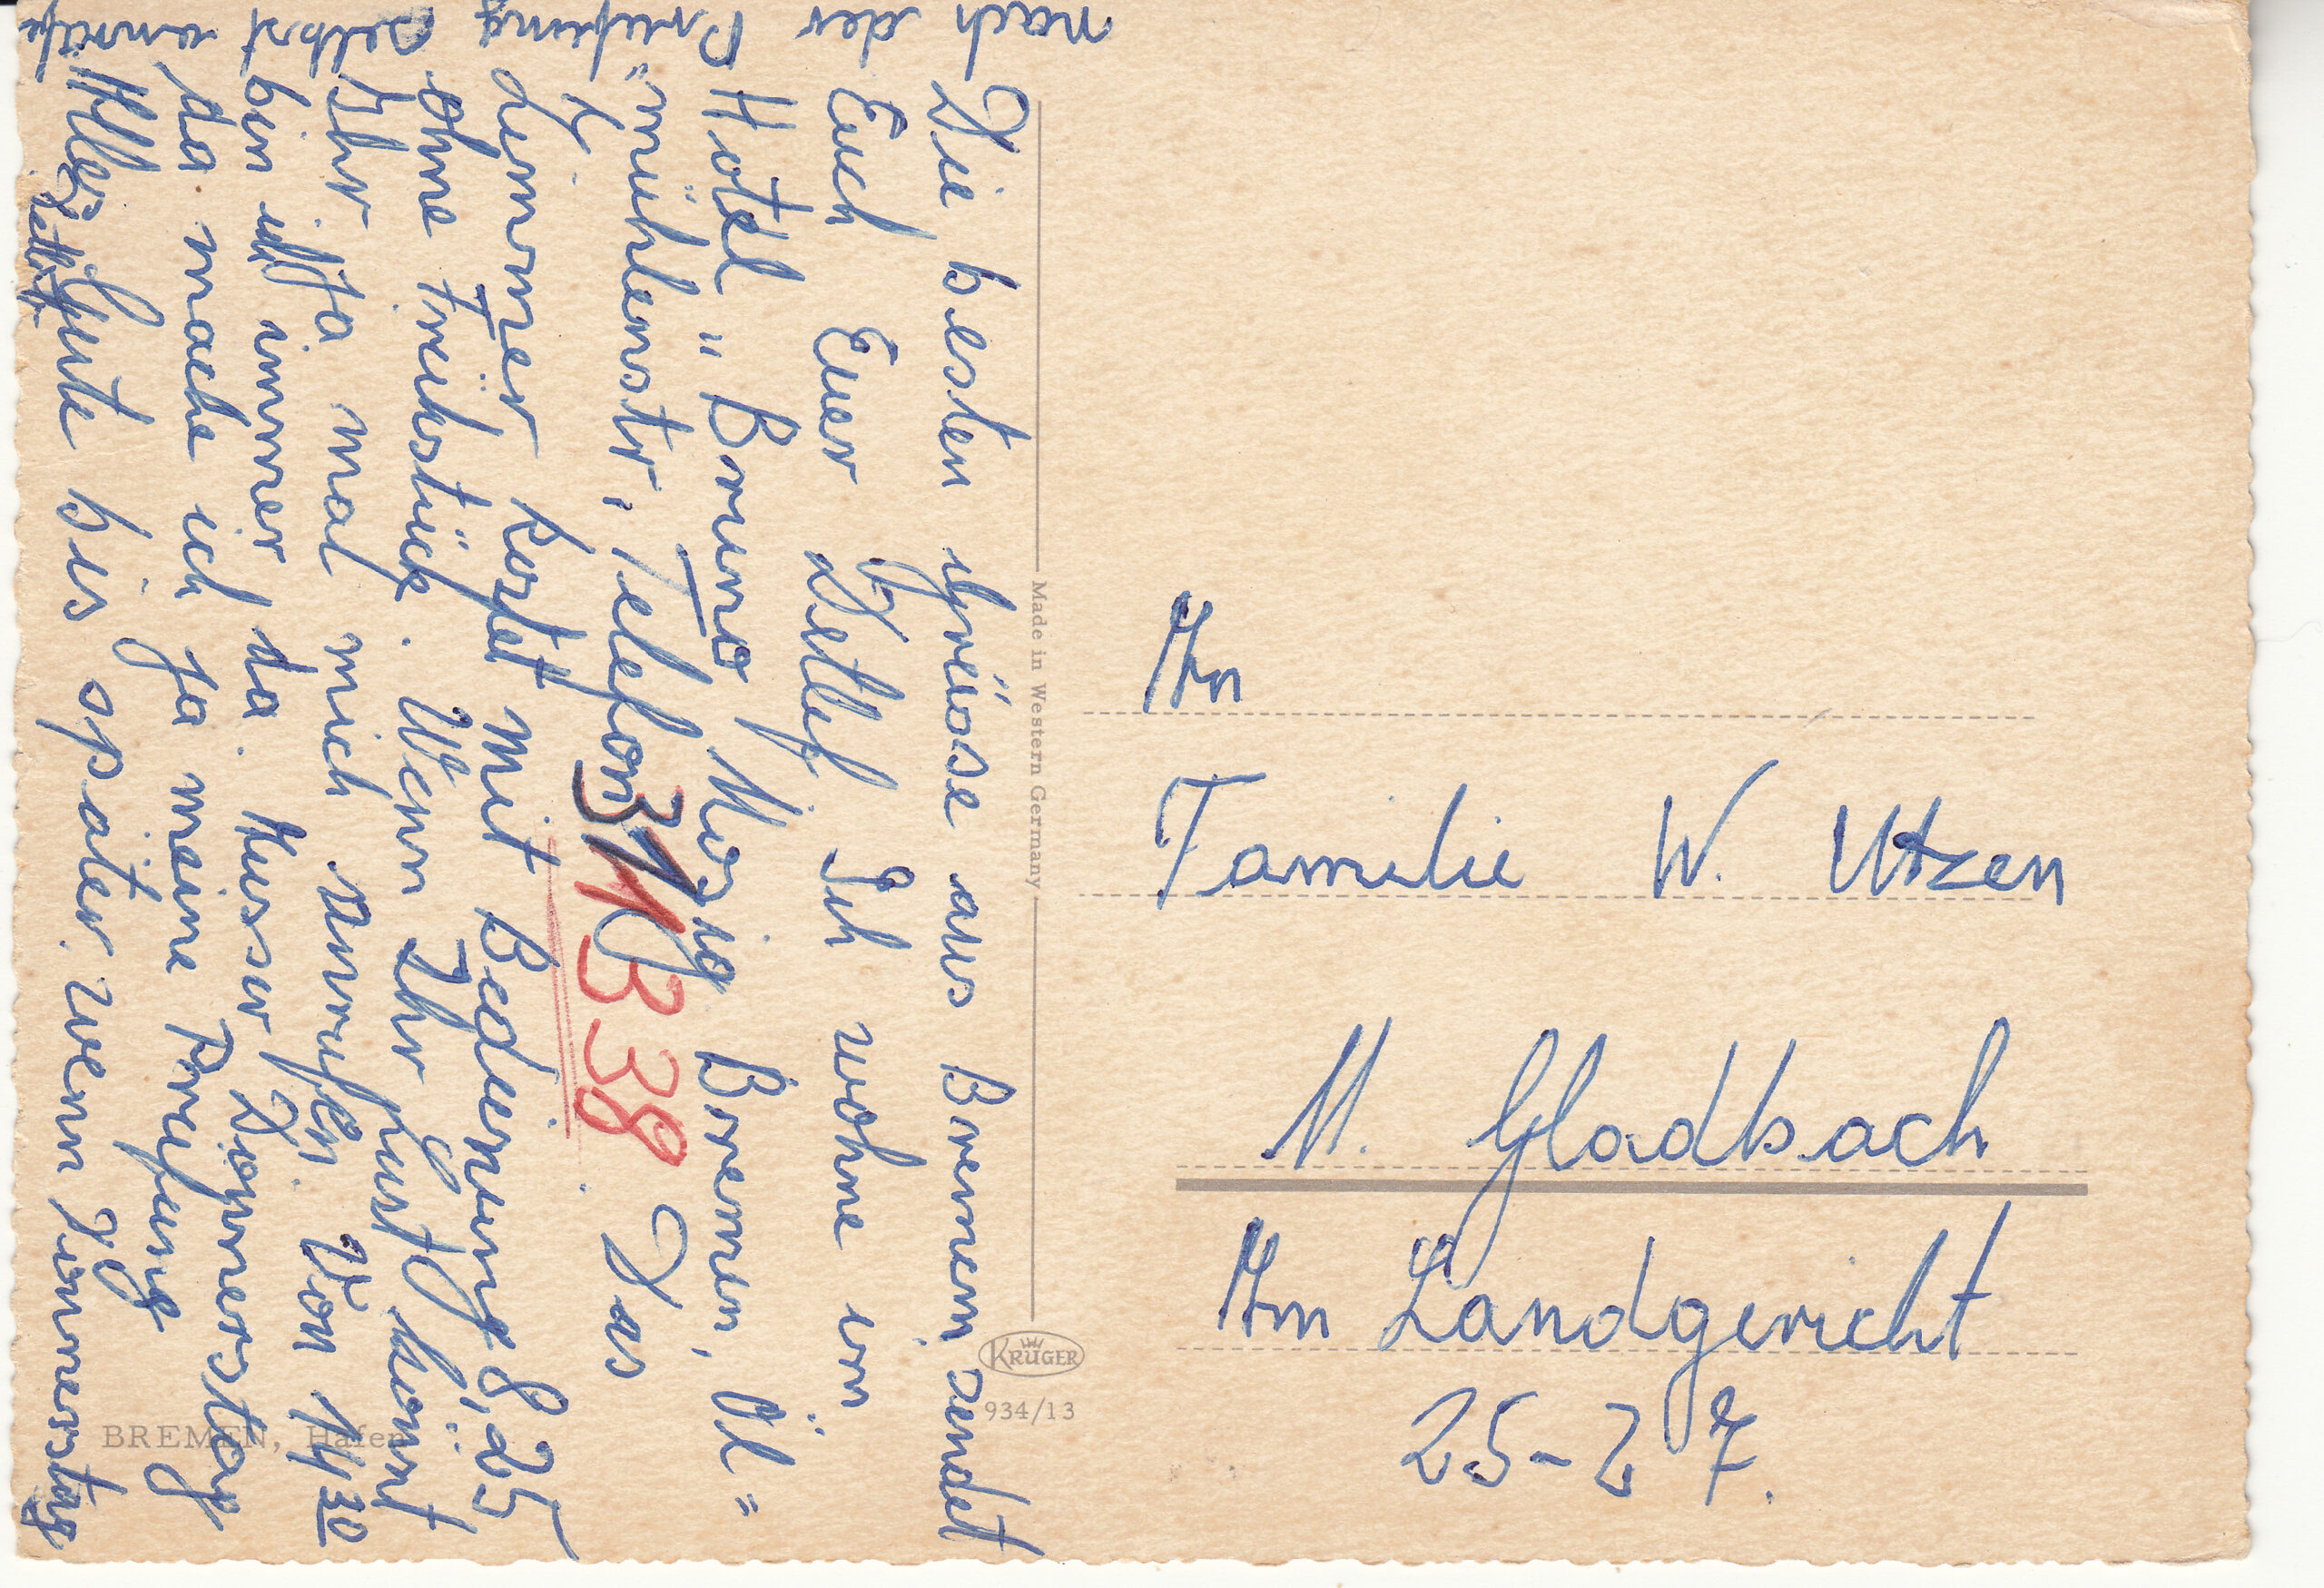 Die besten Grüsse aus Bremen sendet
Euch Euer Detlef. Ich wohne im
Hotel "Bruno Mosig Bremen, Öl=
"mühlenstr, Telefon Das
Zimmer kostet mit Bedienung 8,25
ohne Frühstück. Wenn Ihr Lust könnt
Ihr ja mal mich anrufen. Von 14 30
bin immer da. Ausser Donnerstag
da mache ich ja meine Pruefung
Alles Gute bis später. wenn Donnerstag
nach der Pruefung selbst anrufe
Detlef
Made in Western Germany
KRÜGER
934/13
BREMEN, Hafen
An
Familie W. Utzen
M. Gladbach
Am Landgericht
25-27.